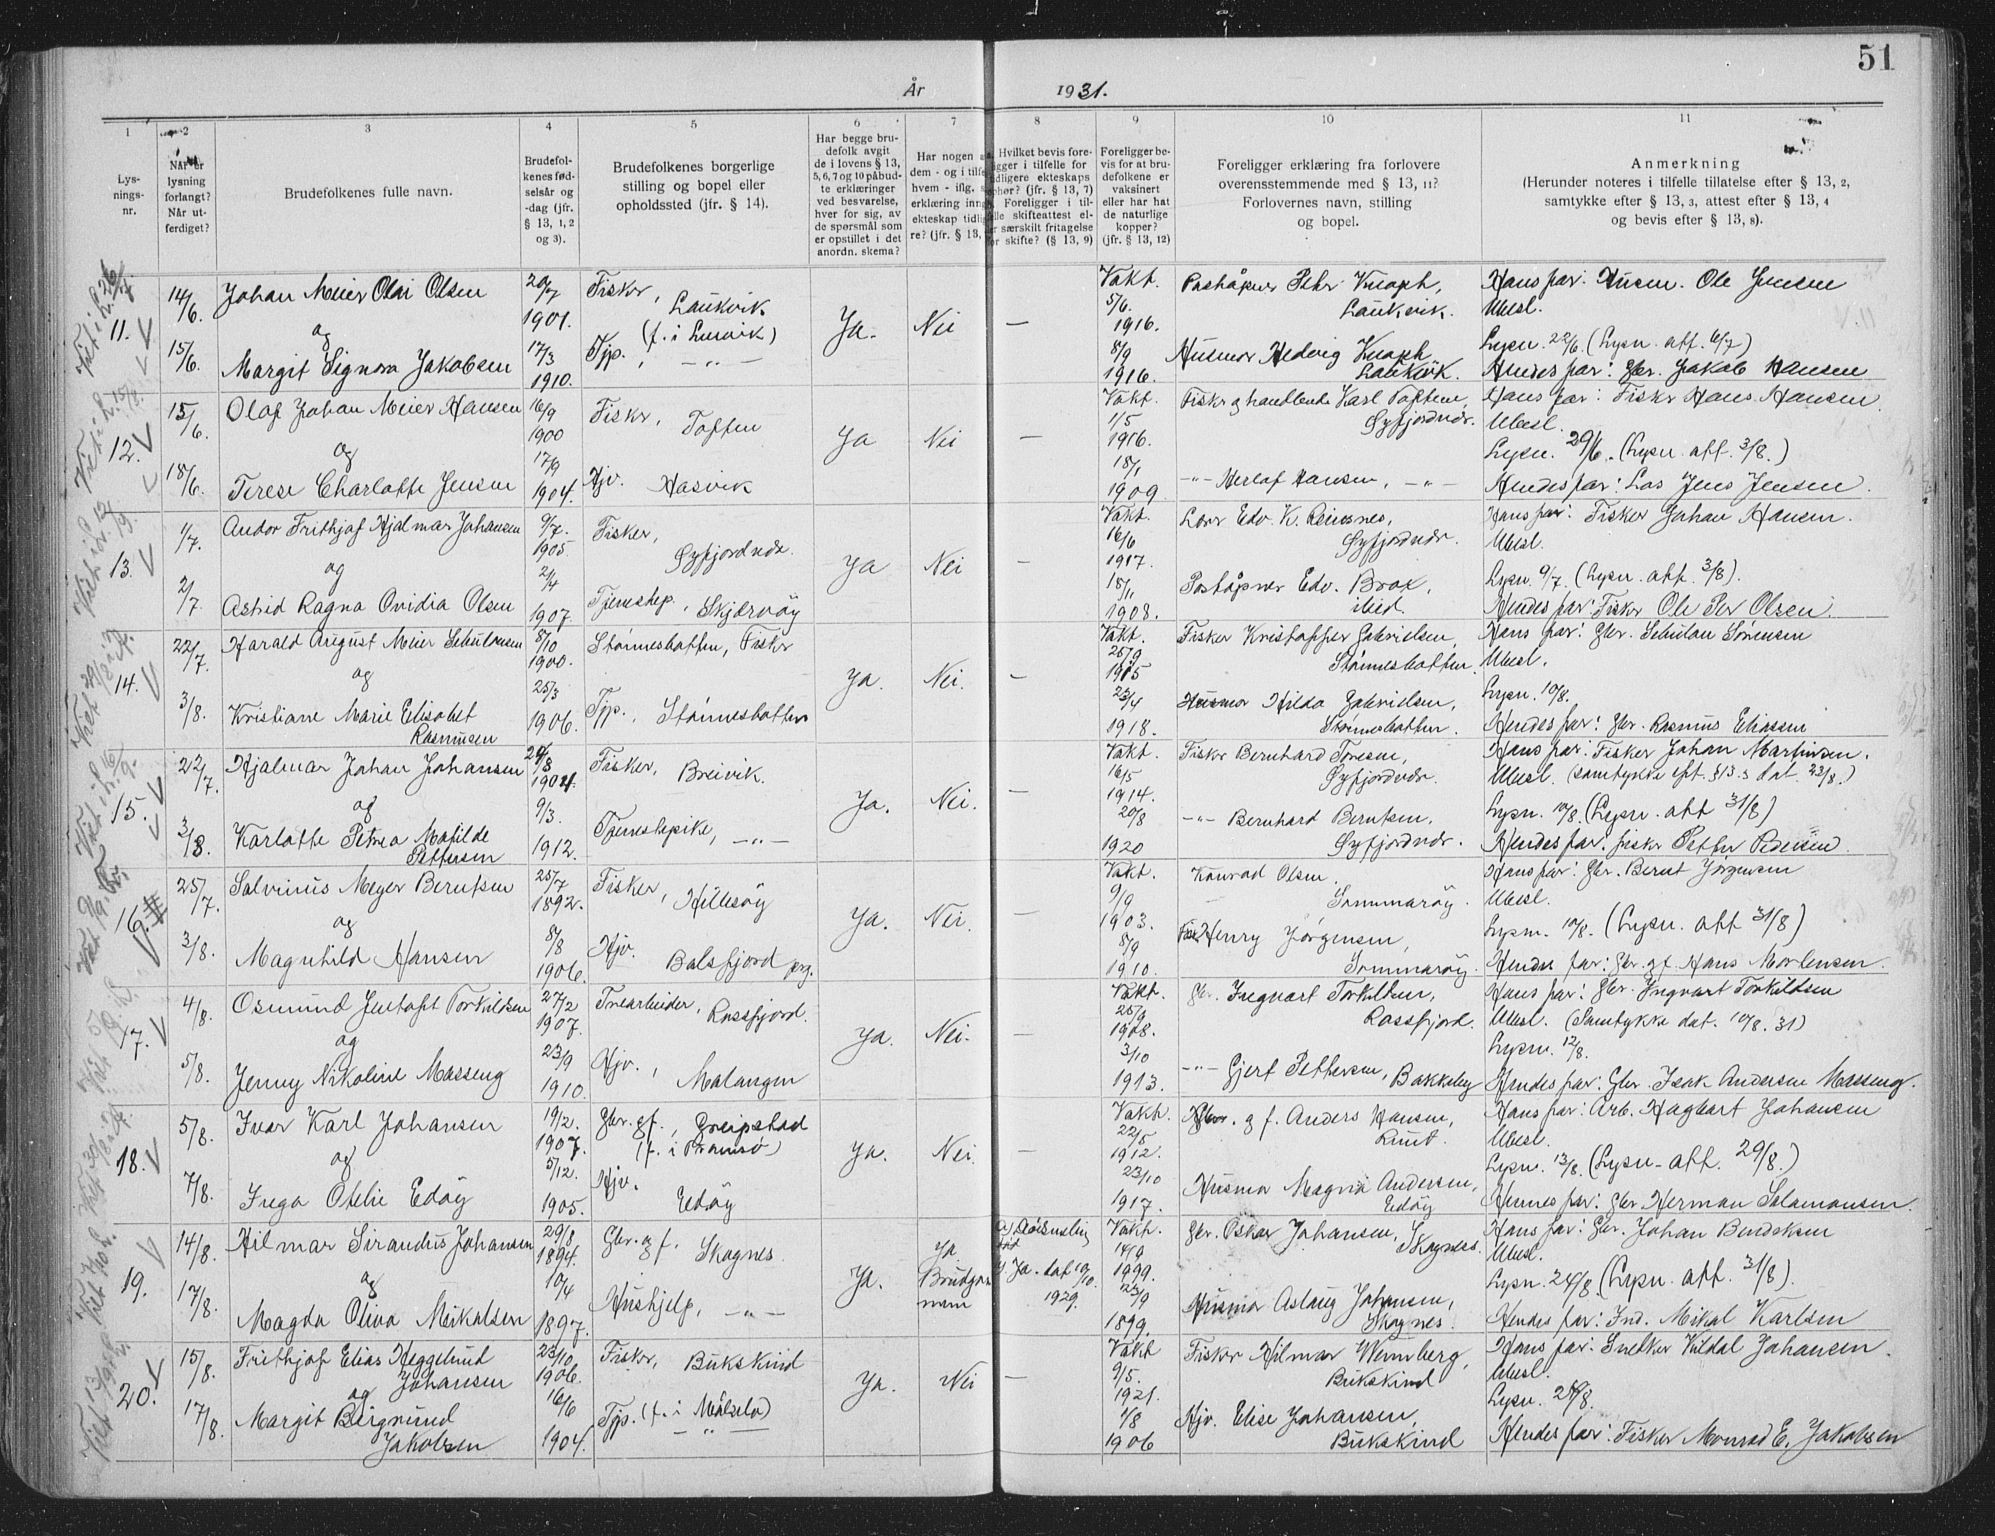 51
År 1931.
1 2 3 4 5 6 7 8 9 10 11
Lysningsnr.
Når er lysning forlangt? Når utferdiget?
Brudefolkenes fulle navn.
Brudefolkenes fødselsår og -dag (jfr. § 13, 1, 2 og 3).
Brudefolkenes borgerlige stilling og bopel eller opholdssted (jfr. § 14).
Har begge brudefolk avgit de i lovens § 13, 5, 6, 7 og 10 påbudte erklæringer ved besvarelse, hver for sig, av de spørsmål som er opstillet i det anordn. skema?
Har nogen
Hvilket bevis
Foreligger bevis for at brudefolkene er vaksinert eller har hat de naturlige kopper? (jfr. § 13, 12)
Foreligger erklæring fra forlovere overensstemmende med § 13, 11? Forlovernes navn, stilling og bopel.
Anmerkning (Herunder noteres i tilfelle tillatelse efter § 13, 2, samtykke efter § 13, 3, attest efter § 13, 4 og bevis efter § 13, 8).
11. 14/6. Johan Meier Olai Olsen 20/7 1901. Fisker, Laukvik. Ja. Nei — Vakt. 5/6. 1916. Peter Knoph, Laukvik. Hans far: Ole Jensen
og Ubesl.
15/6. Margit Signora Jakobsen 17/3 1910. Tjp. — " — 8/9 1916. Husmor Hedvig Knoph Laukvik. Lysn. 22/6. (Lysn. att. 6/7)
Hendes far: Gbr. Jakob Hansen
12. 15/6. Olaf Johan Meier Hansen 16/9 1900 Fisker, Toften Ja Nei — Vakt. 1/5 1916. Fisker og handlende Karl Toften Øyfjordvær. Hans far: Fisker Hans Hansen.
og Ubesl.
18/6. Terese Charlotte Jensen 17/9 1904. Hjv. Hasvik 18/1 1909. — " — Herlof Hansen, — " — Lysn. 29/6. (Lysn. att. 3/8.)
Hendes far: Los Jens Jensen.
13. 1/7. Andor Frithjof Hjalmar Johansen 9/7. 1905 Fisker, Øyfjordvær. Ja Nei — Vakt. 16/6 1917. Edv. K. Reiesnes, Øyfjordvær. Hans far: Fisker Johan Hansen.
og Ubesl.
2/7. Astrid Ragna Ovidia Olsen 2/4 1907. Tjenestep., Skjærvøy 18/11 1908. Poståpner Edv. Brox, ibid. Lysn. 9/7. (Lysn. att. 3/8).
Hendes far: Fisker Ole Per Olsen.
14. 22/7. Harald August Meier Sebulonsen 8/10 1900. Stønnesbotten, Fisker Ja. Nei. — Vakt. 25/9 1915 Fisker Kristoffer Gabrielsen, Stønnesbotten. Hans far: Gbr. Sebulon Sørensen
og Ubesl.
3/8. Kristiane Marie Elisabet Rasmusen 25/3 1906. Tjp., Stønnesbotten 23/4 1918. Husmor Hilda Gabrielsen, Stønnesbotten. Lysn. 10/8.
Hendes far: Gbr. Rasmus Eliassen
15. 22/7. Hjalmar Johan Johansen 24/8 1904. Fisker, Breivik. Ja. Nei. — Vakt. 16/5 1914. Fisker Bernhard Toresen, Øyfjordvær. Hans far: Fisker Johan Martinsen.
og Ubesl. (samtykke eft. § 13.3 dat. 23/8.)
3/8. Karlotte Petrea Matilde Pettersen 9/3. 1912. Tjenestepike, — " — 20/8 1920 — " — Bernhard Berntsen, Øyfjordvær. Lysn. 10/8. (Lysn. att 31/8)
Hendes far. fisker Petter Pedersen.
16. 25/7. Salvinus Meyer Berntsen 25/7 1892. Fisker, Hillesøy Ja. Nei. — Vakt. 9/9 1903. Konrad Olsen. Sommarøy. Hans far: Gbr. Bernt Jørgensen
og Ubesl.
3/8. Magnhild Hansen 8/8 1906. Hjv. Balsfjord prg. 8/9 1910. Henry Jørgensen, Sommarøy. Lysn. 10/8. (Lysn. att 31/8)
Hendes far: Gbr. gf. Hans Mortensen.
17. 4/8. Osmund Torkildsen 27/2 1907. Rossfjord. Ja. Nei. — Vakt. 25/9 1908. Gbr. Ingvart Torkildsen, Rossfjord. Hans far: Gbr. Ingvart Torkildsen
og Ubesl. (Samtykke dat. 10/8. 31)
5/8. Jenny Nikoline Masseng 23/9 1910. Hjv., Malangen 3/10 1913. — " — Gjert Pettersen, Bakkeby Lysn. 12/8.
Hendes far: Gbr. Isak Andersen Masseng.
18. 5/8. Ivar Karl Johansen 19/2. 1907. Gbr. gf., Greipstad (f. i Tromsø) Ja. Nei. — Vakt. 22/5 1912. g f. Anders Hansen, Hans far: Arb. Hagbart Johansen
og Ubesl.
7/8. Inga Otelie Edøy 5/12. 1905. Hjv. Edøy 23/10 1917. Husmor Magna Andersen, Edøy Lysn. 13/8. (Lysn. att. 29/8.)
Hennes far: Gbr Herman Salamonsen.
19. 14/8. Hilmar Sirandus Johansen 29/8 1894. Gbr. gf. Skognes Ja. Ja Brudgommen y. Ja. dat 10/10. 1929. Vakt. 14/9 1999. Gbr. Oskar Johansen, Skognes. Hans far: Gbr. Johan Bendiksen
og Ubesl.
17/8. Magda Oliva Mikalsen 10/4 1897. Hushjelp, — " — 23/9 1899. Husmor Aslaug Johansen, Skognes. Lysn. 24/8. (Lysn. att. 31/8).
Hendes far: Ind. Mikal Karlsen
20. 15/8. Frithjof Elias Heggelund Johansen 23/10 1906. Fisker, Bukskind Ja. Nei — Vakt 9/5. 1921. Fisker Hilmar Wennberg, Bukskind Hans far: Snekker Vildal Johansen.
og Ubesl.
17/8. Margit Bergmund Jakobsen 16/6 1904. Tjp. (f. i Målselv) — " — 1/8 1906 Hjv. Elise Johansen, Bukskind Lysn. 24/8.
Hendes far: Fisker Monrad E. Jakobsen